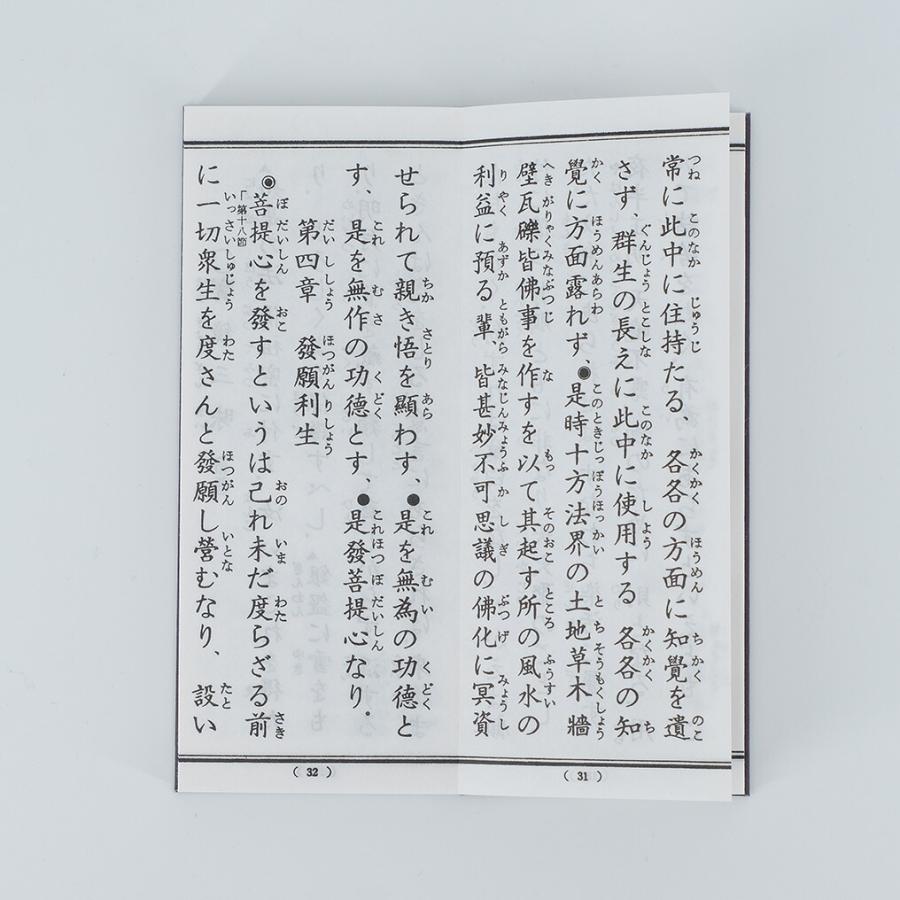 常に此中に住持たる、各各の方面に知覺を遺
さず、群生の長えに此中に使用する各各の知
覺に方面露れず、◉是時十方法界の土地草木牆
壁瓦礫皆佛事を作すを以て其起す所の風水の
利益に預る輩、皆甚妙不可思議の佛化に冥資
(31)
せられて親き悟を顯わす、●是を無為の功德と
す、是を無作の功德とす、●是發菩提心なり。
第四章 發願利生
◉「第十八節 菩提心を發すというは己れ未だ度らざる前
に一切衆生を度さんと發願し營むなり、設い
(32)